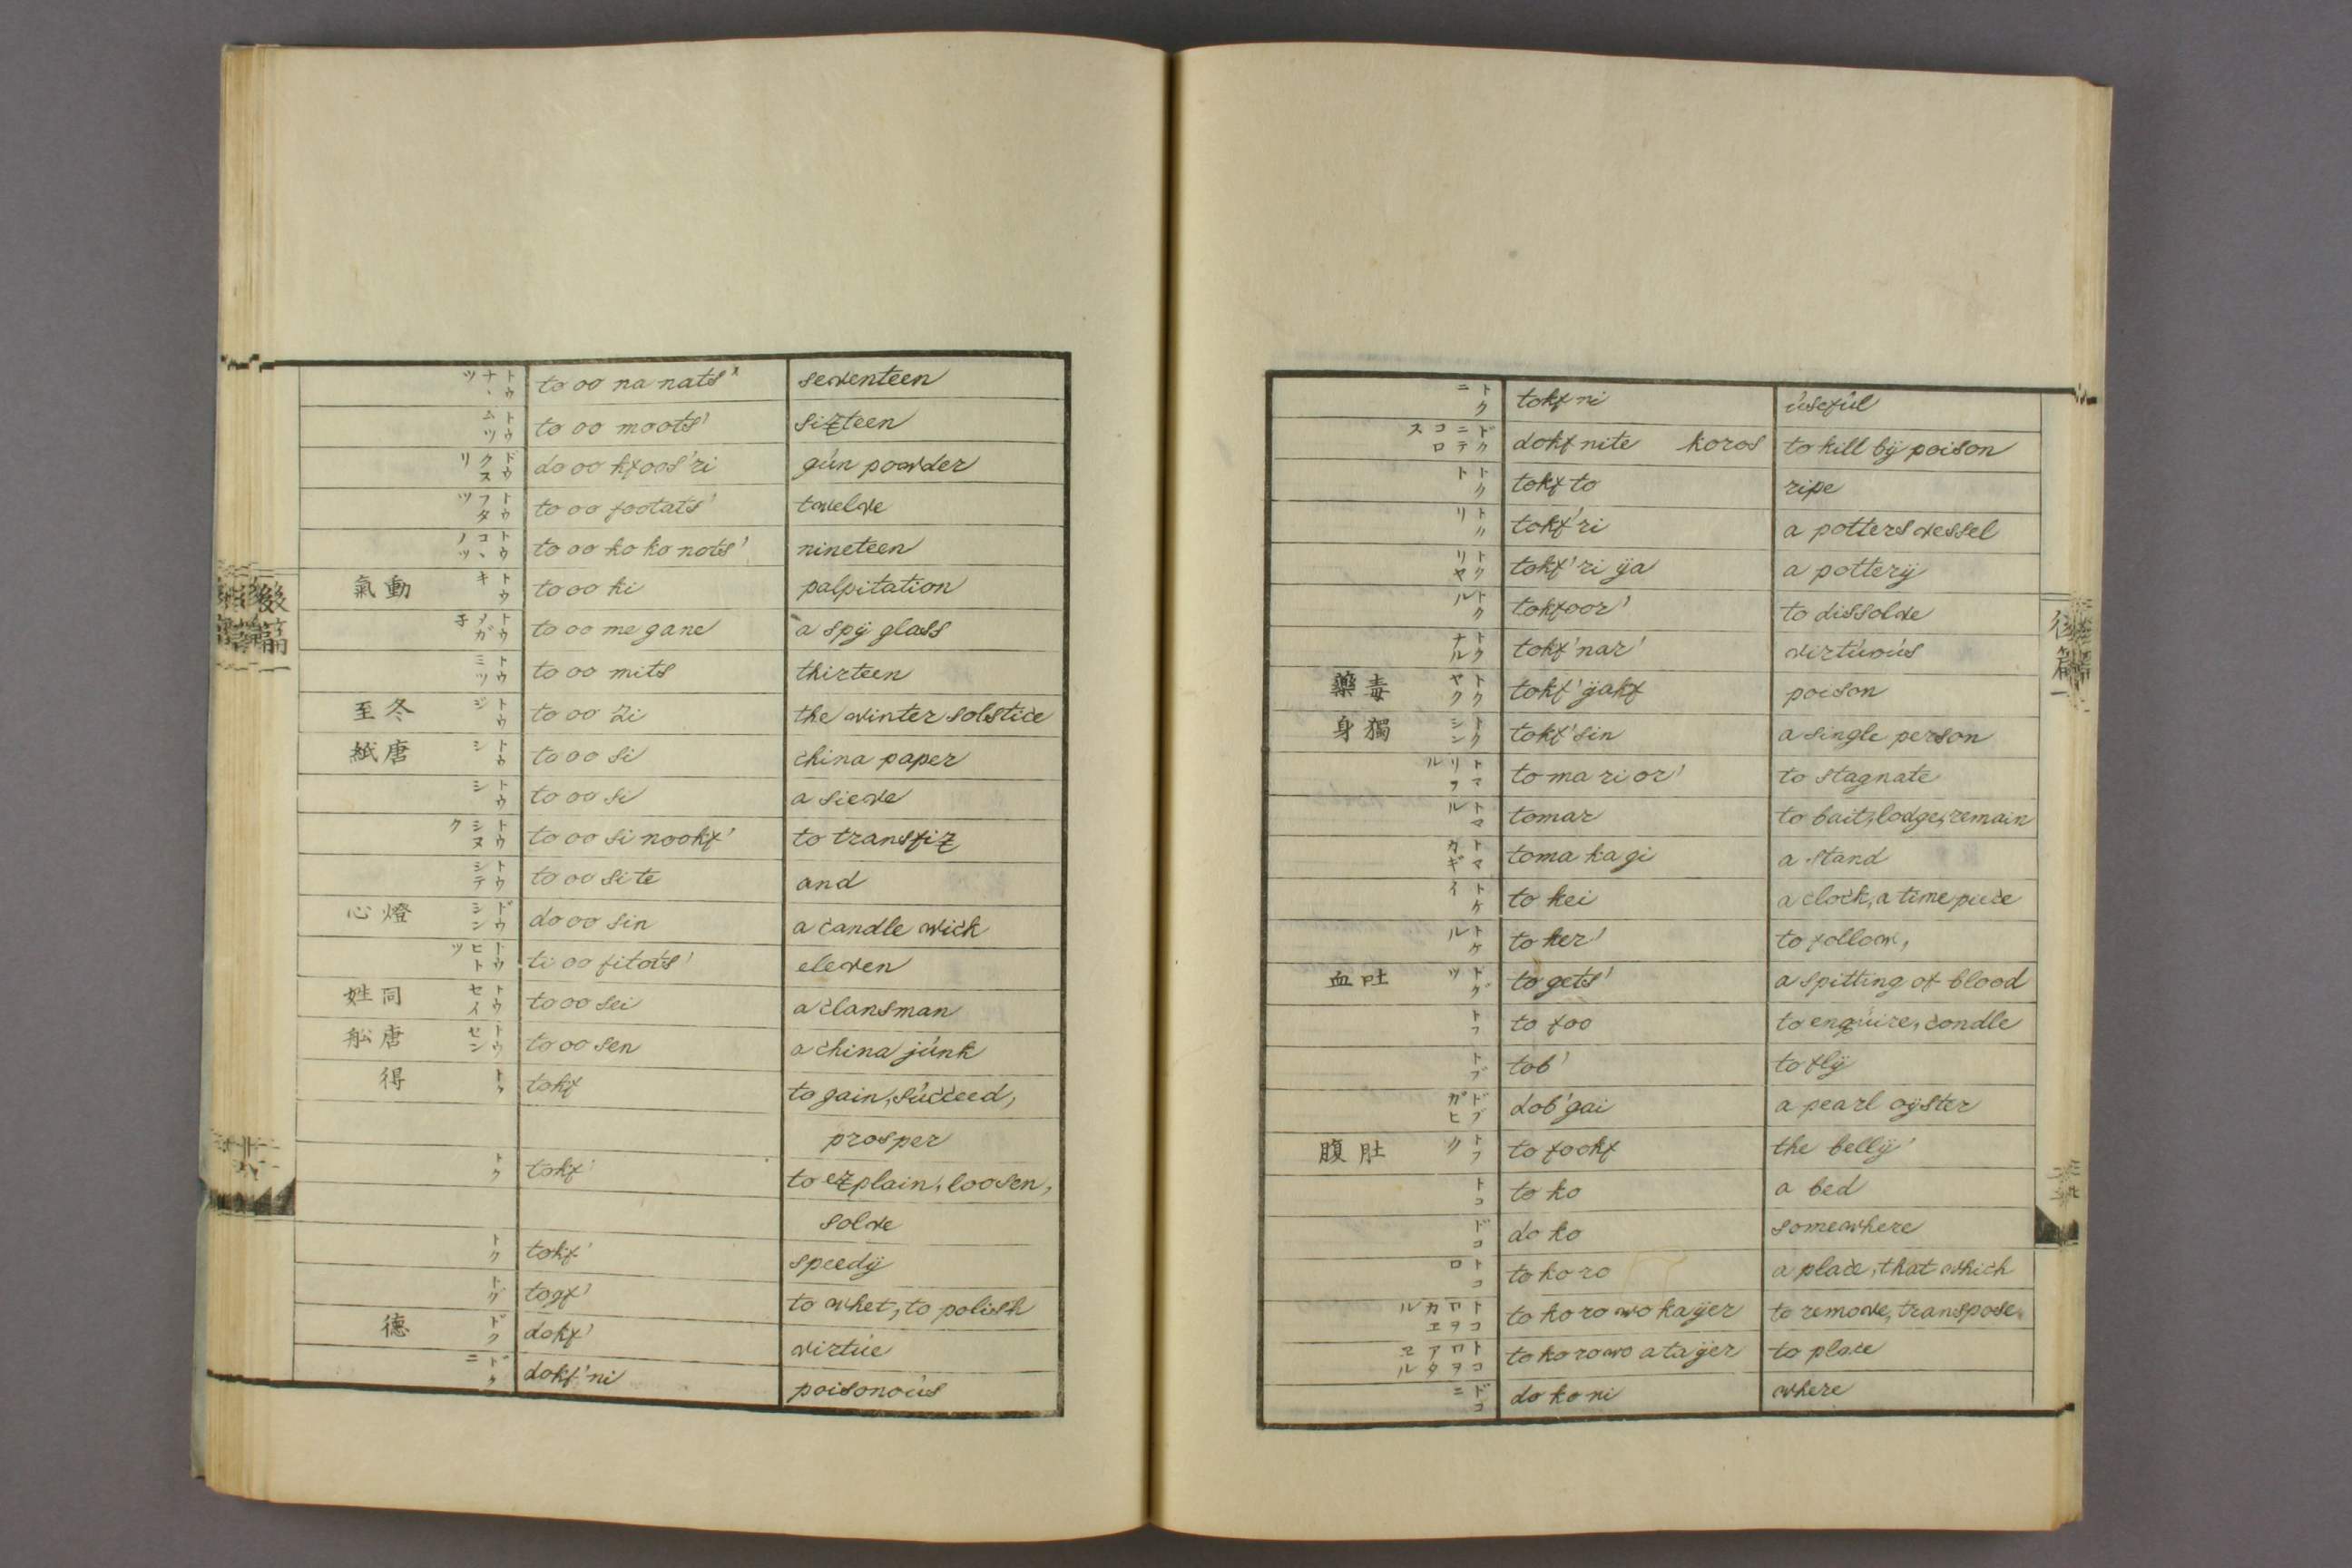 トウナヽツ to oo na nats' seventeen
トウムツ to oo moots' sixteen
ドウクスリ do oo kfoos'ri gún powder
トウフタツ to oo footats' twelve
トウコヽノツ to oo ko ko nots' nineteen
氣動 トウキ to oo ki palpitation
トウメガ子 to oo me gane a spÿ glass
トウミツ to oo mits thirteen
至冬 トウジ to oo zi the winter solstice
紙唐 トウシ to oo si china paper
トウシ to oo si a sieve
トウシヌク to oo si nookf' to transfix
トウシテ to oo si te and
心燈 ドウシン do oo sin a candle wick
トウヒトツ ti oo fitots' eleven
姓同 トウセイ to oo sei a clansman
舩唐 トウセン to oo sen a china júnk
得 トク tokf to gain, súcceed,
prosper
トク tokf' to explain, loosen,
solve
トク tokf' speedÿ
トグ togf' to whet, to polish
德 ドク dokf' virtúe
ドクニ dokf'ni poisonoús
後篇
トクニ tokf ni úsefúl
ドクニテコロス dokf nite koros to kill bÿ poison
トクト tokf to ripe
トクリ tokf'ri a potters vessel
トクリヤ tokf'ri ÿa a potterÿ
トクル tokfoor' to dissolve
トクナル tokf'nar' virtúoús
藥毒 トクヤク tokf'ÿakf poison
身獨 トクシン tokf'sin a single person
トマリヲル to ma ri or' to stagnate
トマル tomar to bait, lodge, remain
トマカギ toma ka gi a stand
トケイ to kei a clock, a time piece
トケル to ker' to follow,
血吐 トゲツ to gets' a spitting of blood
トフ to foo to enqúire, condle
トブ tob' to flÿ
ドブガヒ dob'gai a pearl oÿster
腹肚 トフク to fookf the bellÿ
トコ to ko a bed
ドコ do ko somewhere
トコロ to ko ro a place, that which
トコロヲカヱル to ko ro wo kaÿer to remove, transpose,
トコロヲアタヱル to ko ro wo ataÿer to place
ドコニ do ko ni where
後篇一